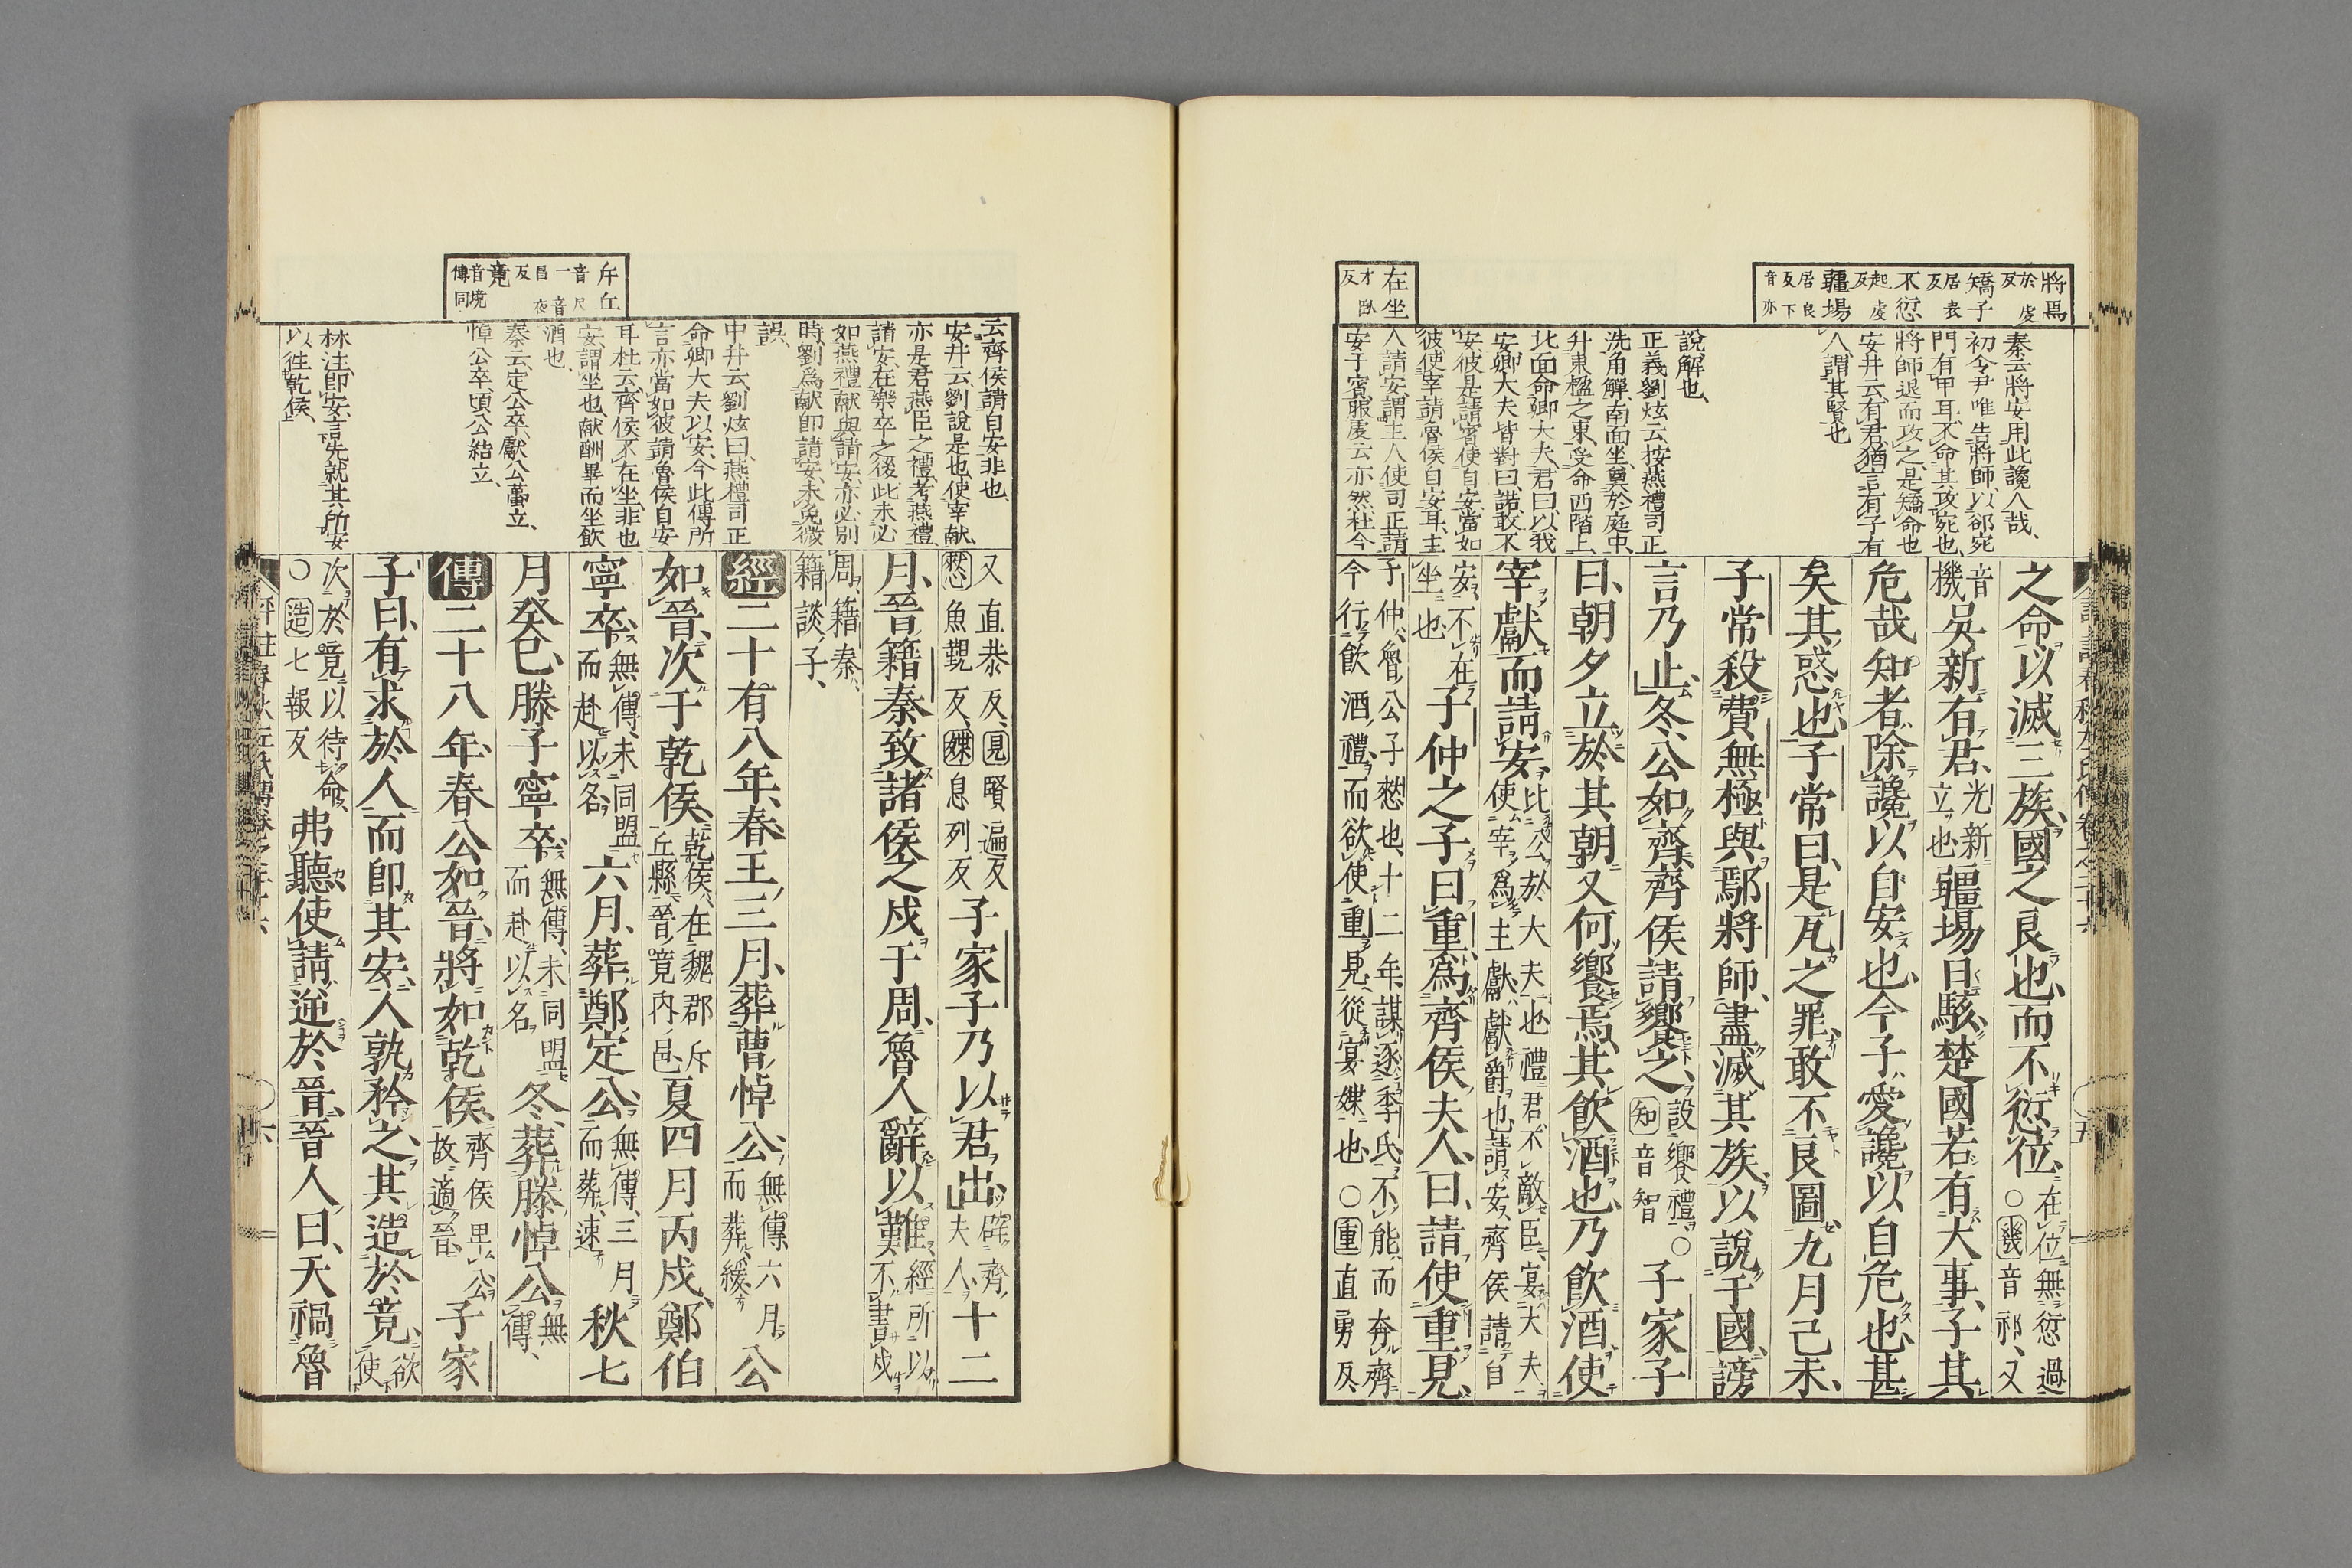 將焉
於虔反
矯子
居表反
不愆
起虔反
疆埸
居良反下音亦
在坐
才臥反
秦云將安用此讒人哉、
初令尹唯告將師以郤宛
門有甲耳不命其攻宛也
將師退而攻之是矯命也
安井云有君猶言有子有
人謂其賢也
說解也、
正義劉炫云按燕禮司正
洗角觶南面坐奠於庭中
升東楹之東受命西階上
北面命卿大夫君曰以我
安卿大夫皆對曰諾敢不
安彼是請賓使自安當如
彼使宰請魯侯自安耳主
人請安謂主人使司正請
安于賓服虔云亦然杜今
之命以滅三族國之良也而不愆位
在位無愆過
○幾音祈又
音機
吳新有君
光新立也
疆場日駭楚國若有大事子其
危哉知者除讒以自安也今子愛讒以自危也甚
矣其惑也子常曰是瓦之罪敢不良圖九月己未
子常殺費無極與鄢將師盡滅其族以說于國謗
言乃止冬公如齊齊侯請饗之
設饗禮○
知音智
子家子
曰朝夕立於其朝又何饗焉其飲酒也乃飲酒使
宰獻而請安
比公於大夫也禮君不敵臣宴大夫
使宰爲主獻獻爵也請安齊侯請自
安不在
坐也
子仲之子曰重爲齊侯夫人曰請使重見
子仲魯公子憖也十二年謀逐季氏不能而奔齊
今行飲酒禮而欲使重見從宴媟也○重直勇反
斥丘
音尺一音昌夜反
竟
音境傳同
云齊侯請自安非也
安井云劉說是也使宰獻
亦是君燕臣之禮考燕禮
請安在樂卒之後此未必
如燕禮獻與請安亦必別
時劉爲獻即請安未免微
誤
中井云劉炫曰燕禮司正
命卿大夫以安今此傳所
言亦當如彼請魯侯自安
耳杜云齊侯不在坐非也
安謂坐也獻酬畢而坐飲
酒也
秦云定公卒獻公蠆立、
悼公卒頃公結立、
林注即安言先就其所安
以徃乾侯
又直恭反見賢遍反
憖魚覲反媟息列反
子家子乃以君出
辟齊
夫人
十二
月晉籍秦致諸侯之戍于周魯人辭以難
經所以
不書戍
周籍秦
籍談子
經二十有八年春王三月葬曹悼公
無傳六月
而葬緩
公
如晉次于乾侯
乾侯在魏郡斥
丘縣晉竟內邑
夏四月丙戍鄭伯
寧卒
無傳未同盟
而赴以名
六月葬鄭定公
無傳三月
而葬速
秋七
月癸巳滕子寧卒
無傳未同盟
而赴以名
冬葬滕悼公
無
傳
傳二十八年春公如晉將如乾侯
齊侯卑公
故適晉
子家
子曰有求於人而即其安人孰矜之其造於竟
欲
使
次於竟以待命
○造七報反
弗聽使請逆於晉晉人曰天禍魯